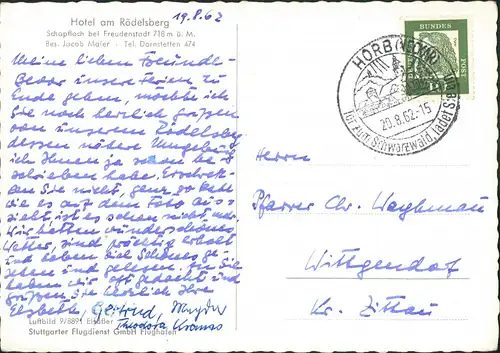 Hotel am Rödelsberg
Schopfloch bei Freudenstadt 718 m ü. M.
Bes. Jacob Maier - Tel. Dornstetten 474
19.8.62
Meine lieben Freunde-
Bevor unsere Ferien zu
Ende gehen, möchte ich
Sie noch herzlich grüßen
von unserem Rödelsberg
dessen nähere Umgebung
ich Ihnen ja schon be-
schrieben habe. Erschrek-
ken Sie nicht, ganz so
wie es auf dem Foto aus-
sieht ist es schon nicht mehr.
Wir hatten wunderschönes
Wetter, sind prächtig erholt
und haben viel Schönes ge-
sehen und gelesen. An Sie
haben wir oft gedacht und
grüßen Sie herzlich Ihre
Elsbeth, Gertrud, Magda
Theodora Krauss
Luftbild 9/8891
Stuttgarter Flugdienst GmbH Flughafen
DEUTSCHE BUNDESPOST
HORB (NECKAR)
20.8.62-15
Tor zum Schwarzwald, ladet Sie ein
Herrn
Pfarrer Chr. Weghmau
Wittgendorf
Kr. Zittau